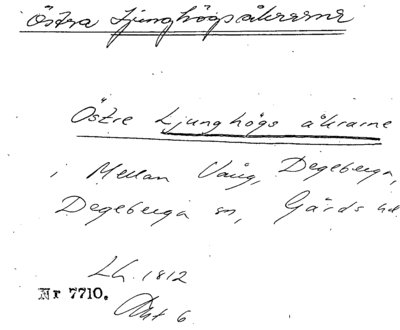 Östra Ljunghögsåkrarne
Östre Ljunghögs åkrarne
i Mellan Vång, Degeberga,
Degeberga sn, Gärds hd
Lh. 1812
Nr 7710.
Akt 6